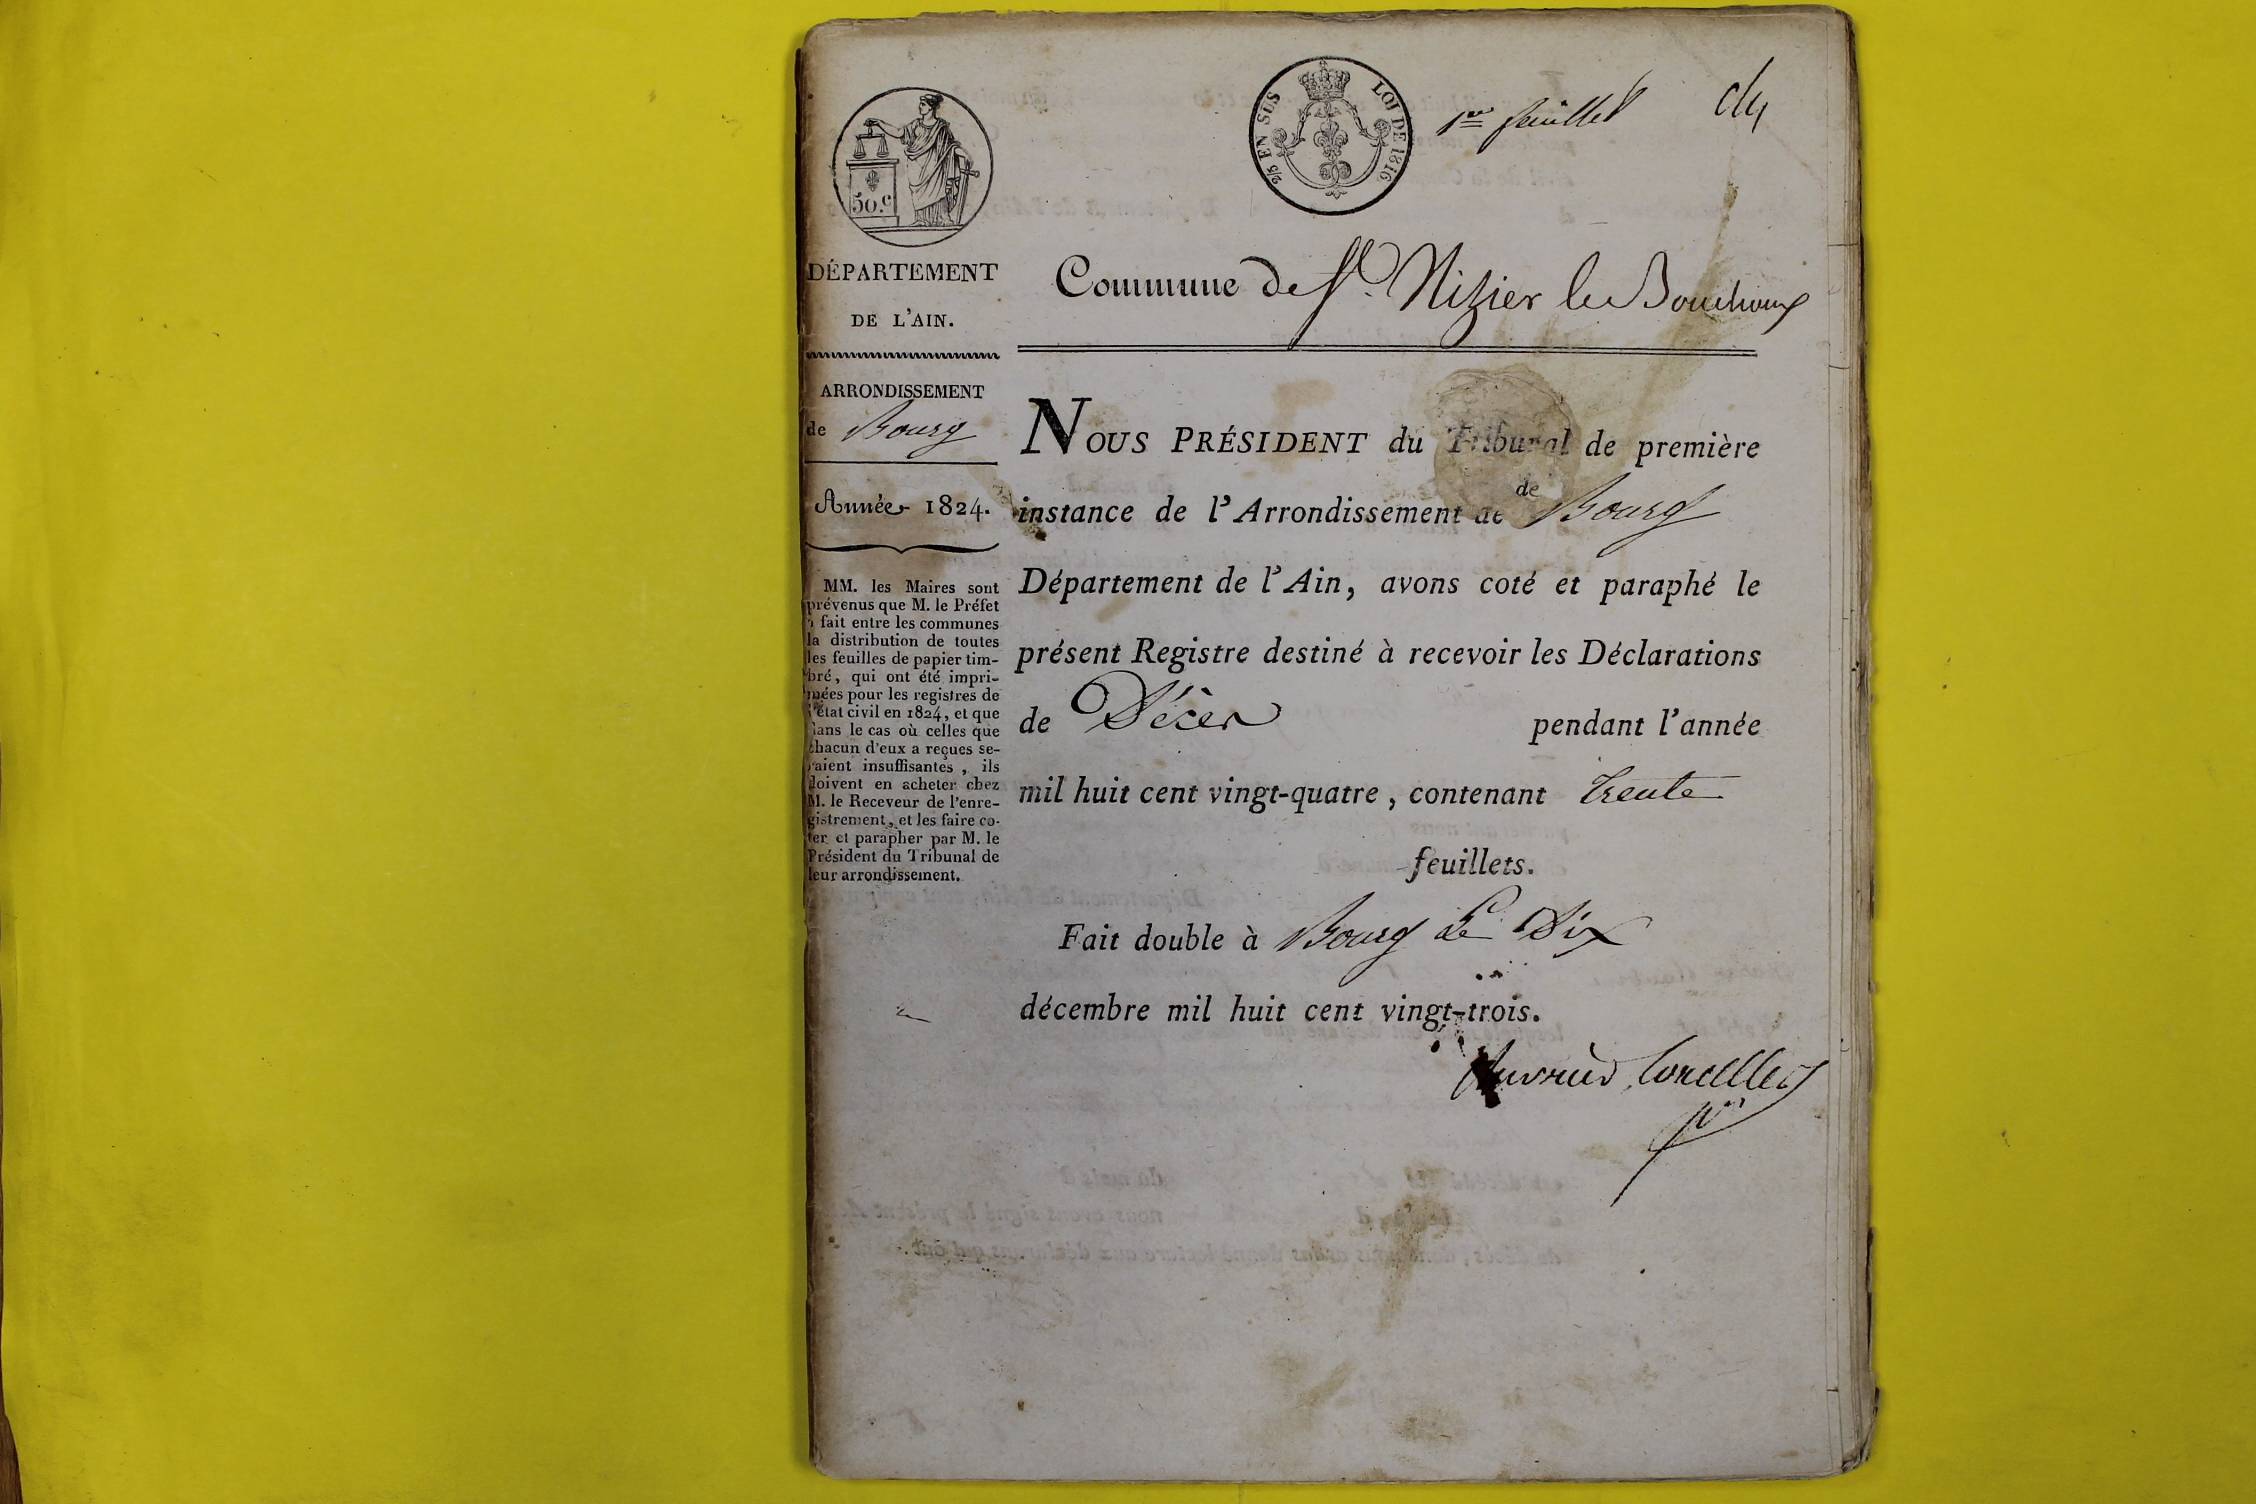 50.c
2/5 EN SUS
LOI DE 1816
1er feuillet
DÉPARTEMENT
DE L'AIN.
ARRONDISSEMENT
de Bourg
Année 1824.
MM. les Maires sont
prévenus que M. le Préfet
a fait entre les communes
la distribution de toutes
les feuilles de papier tim-
bré, qui ont été impri-
mées pour les registres de
l'état civil en 1824, et que
dans le cas où celles que
chacun d'eux a reçues se-
raient insuffisantes, ils
doivent en acheter chez
M. le Receveur de l'enre-
gistrement, et les faire co-
ter et parapher par M. le
Président du Tribunal de
leur arrondissement.
Commune de St. Nizier le Bouchoux
NOUS PRÉSIDENT du Tribunal de première
instance de l'Arrondissement de de Bourg
Département de l'Ain, avons coté et paraphé le
présent Registre destiné à recevoir les Déclarations
de Décès pendant l'année
mil huit cent vingt-quatre, contenant trente
feuillets.
Fait double à Bourg Le Dix
décembre mil huit cent vingt-trois.